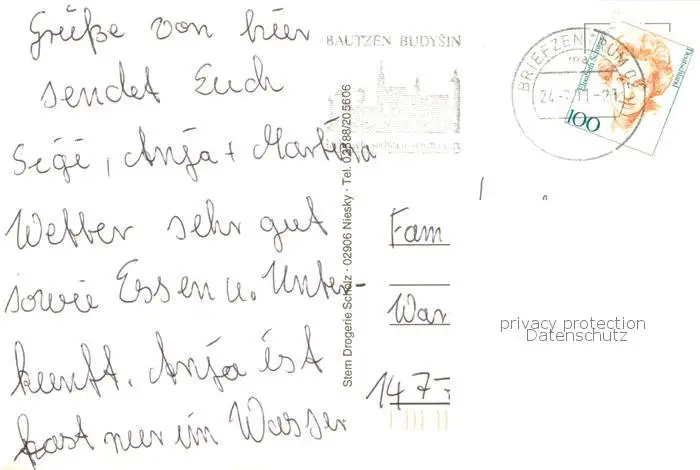 Grüße von hier
sendet Euch
Sigi, Anja + Martina
Wetter sehr gut
sowie Essen u. Unter-
kunft. Anja ist
fast nur im Wasser
BAUTZEN BUDYŠIN
Stern Drogerie Scholz · 02906 Niesky · Tel. 03588/205606
BRIEFZENTRUM 02
Deutschland
100
Fam
War
1477
privacy protection
Datenschutz